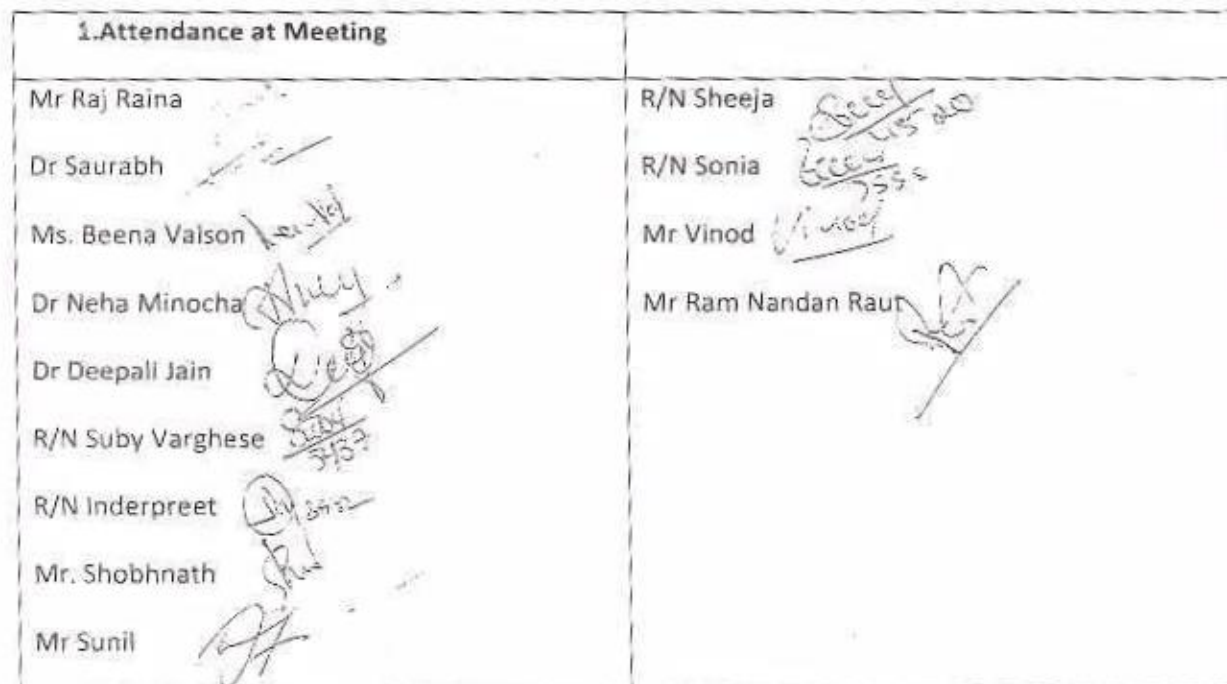 1.Attendance at Meeting
Mr Raj Raina
Dr Saurabh
Ms. Beena Valson
Dr Neha Minocha
Dr Deepali Jain
R/N Suby Varghese
5437
R/N Inderpreet
Mr. Shobhnath
Mr Sunil
R/N Sheeja
R/N Sonia
Mr Vinod Vinod
Mr Ram Nandan Raut